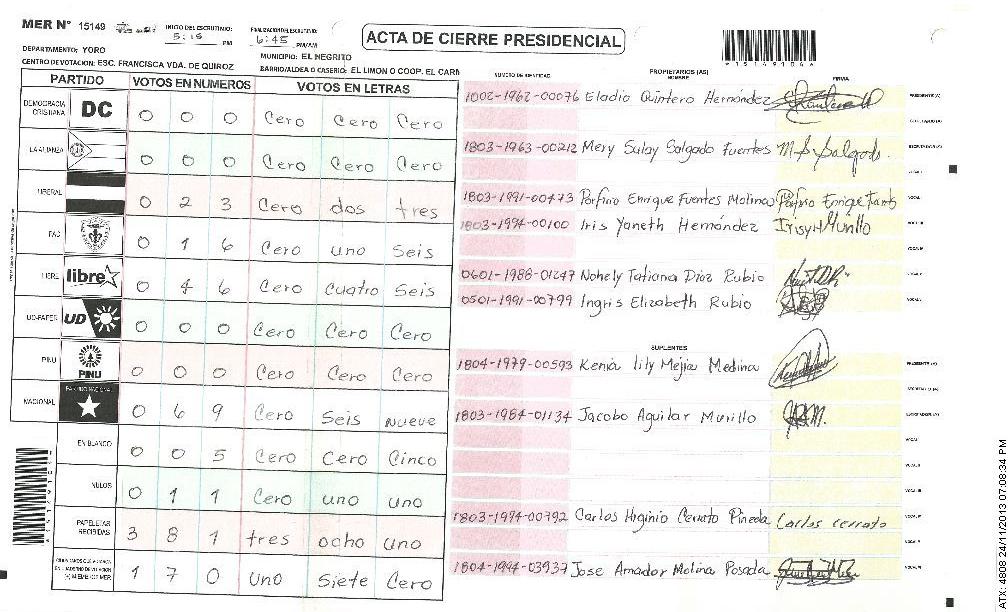 MER N° 15149
INICIO DEL ESCRUTINIO: 5:15 PM
FINALIZACION DEL ESCRUTINIO: 6:45 PM/AM
ACTA DE CIERRE PRESIDENCIAL
DEPARTAMENTO: YORO
MUNICIPIO: EL NEGRITO
CENTRO DE VOTACION: ESC. FRANCISCA VDA. DE QUIROZ
BARRIO/ALDEA O CASERIO: EL LIMON O COOP. EL CARM
PARTIDO VOTOS EN NUMEROS VOTOS EN LETRAS
DEMOCRACIA CRISTIANA DC 0 0 0 Cero Cero Cero
LA ALIANZA 0 0 0 Cero Cero Cero
LIBERAL 0 2 3 Cero dos tres
PAC 0 1 6 Cero uno Seis
LIBRE libre 0 4 6 Cero cuatro Seis
UD-FAPER UD 0 0 0 Cero Cero Cero
PINU PINU 0 0 0 Cero Cero Cero
NACIONAL PARTIDO NACIONAL 0 6 9 Cero Seis nueve
EN BLANCO 0 0 5 Cero Cero Cinco
NULOS 0 1 1 Cero uno uno
PAPELETAS RECIBIDAS 3 8 1 tres ocho uno
1 7 0 uno Siete Cero
NUMERO DE IDENTIDAD PROPIETARIOS (AS) NOMBRE FIRMA
1002-1962-00076 Eladio Quintero Hernández PRESIDENTE (A)
SECRETARIO (A)
1803-1963-00212 Mery Sulay Salgado Fuentes M S Salgado. ESCRUTADOR (A)
VOCAL I
1803-1991-00473 Porfirio Enrique Fuentes Molina VOCAL II
1803-1994-00100 Iris Yaneth Hernández Irisy H Murillo VOCAL III
VOCAL IV
0601-1988-01247 Nohely Tatiana Díaz Rubio VOCAL V
0501-1991-00799 Ingris Elizabeth Rubio
SUPLENTES
1804-1979-00593 Kenia lily Mejia Medina PRESIDENTE (A)
SECRETARIO (A)
1803-1984-01134 Jacobo Aguilar Murillo ESCRUTADOR (A)
VOCAL I
VOCAL II
VOCAL III
1803-1994-00792 Carlos Higinio Cerrato Pineda Carlos cerrato VOCAL IV
VOCAL V
1804-1994-03937 Jose Amador Molina Posada VOCAL VI
ATX: 4808 24/11/2013 07:08:34 PM